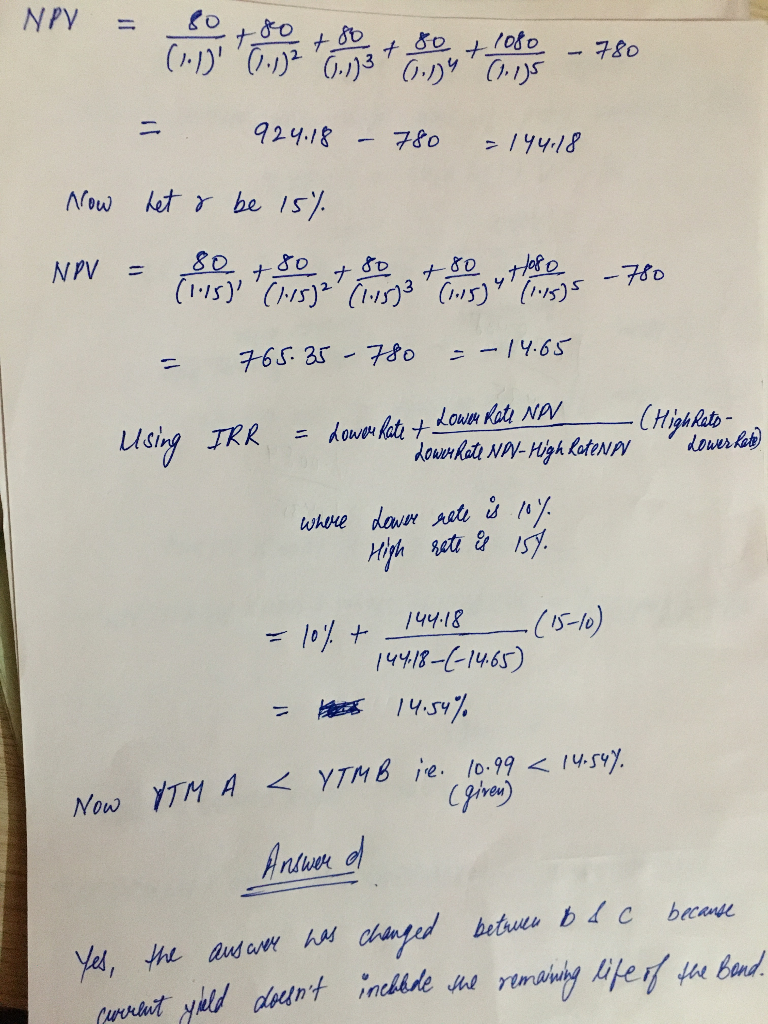 NPV = 80/(1.1)¹ + 80/(1.1)² + 80/(1.1)³ + 80/(1.1)⁴ + 1080/(1.1)⁵ - 780
= 924.18 - 780 = 144.18
Now Let r be 15%.
NPV = 80/(1.15)¹ + 80/(1.15)² + 80/(1.15)³ + 80/(1.15)⁴ + 1080/(1.15)⁵ - 780
= 765.35 - 780 = -14.65
Using IRR = Lower Rate + Lower Rate NPV/Lower Rate NPV - High Rate NPV (High Rate - Lower Rate)
where Lower rate is 10%.
High rate is 15%.
= 10% + 144.18/144.18-(-14.65) (15-10)
= 14.54%
Now YTM A < YTM B i.e. 10.99 < 14.54%.
(given)
Answer d
Yes, the answer has changed between b & c because
current yield doesn't include the remaining life of the Bond.